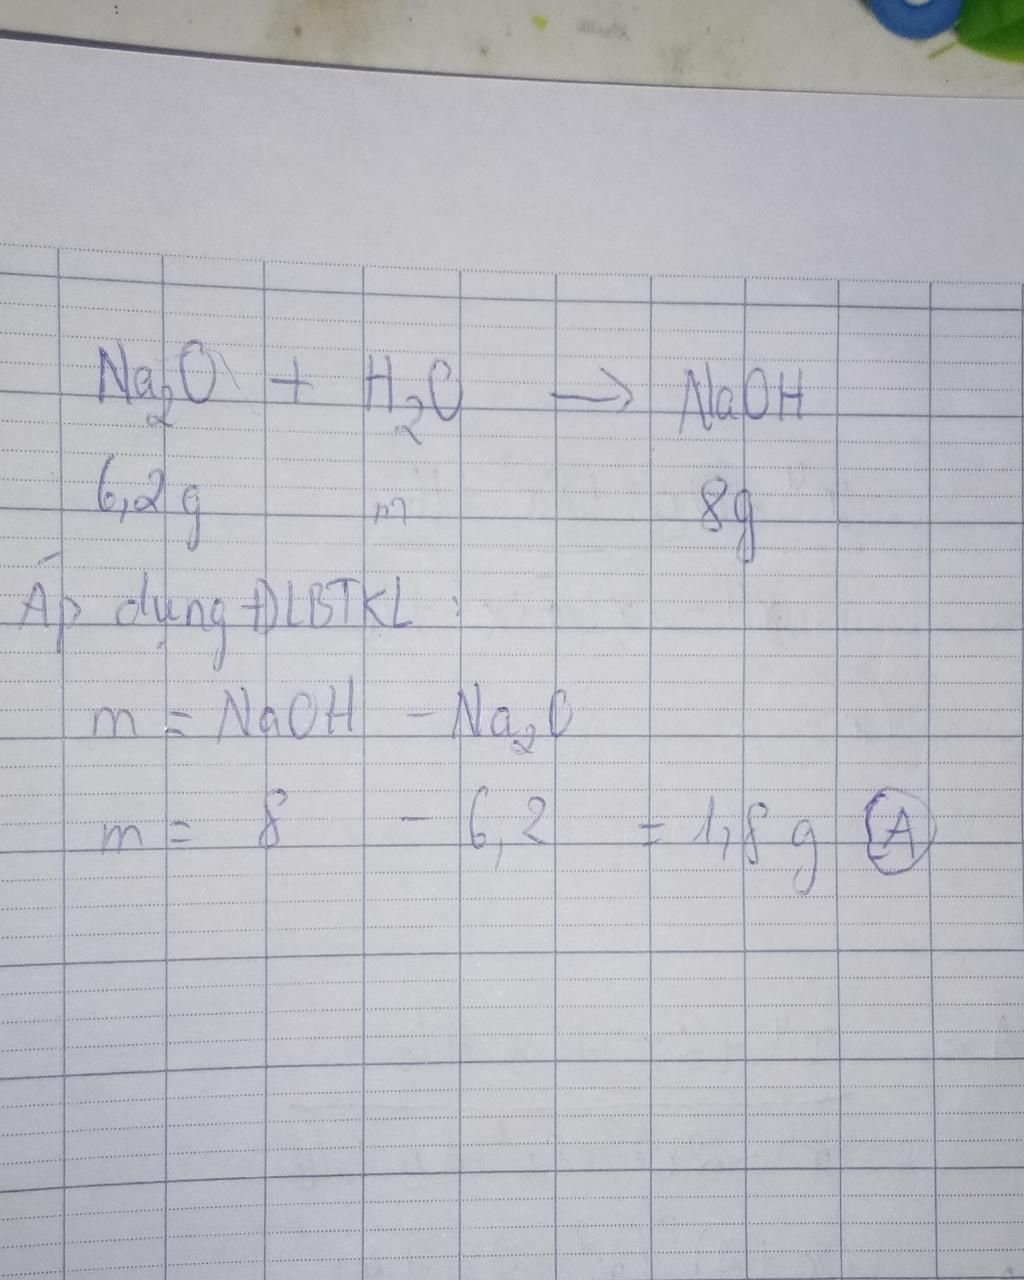 Na₂O + H₂O → NaOH
6,2g m 8g
Áp dụng ĐLBTKL :
m = NaOH - Na₂O
m = 8 - 6,2 = 1,8 g A